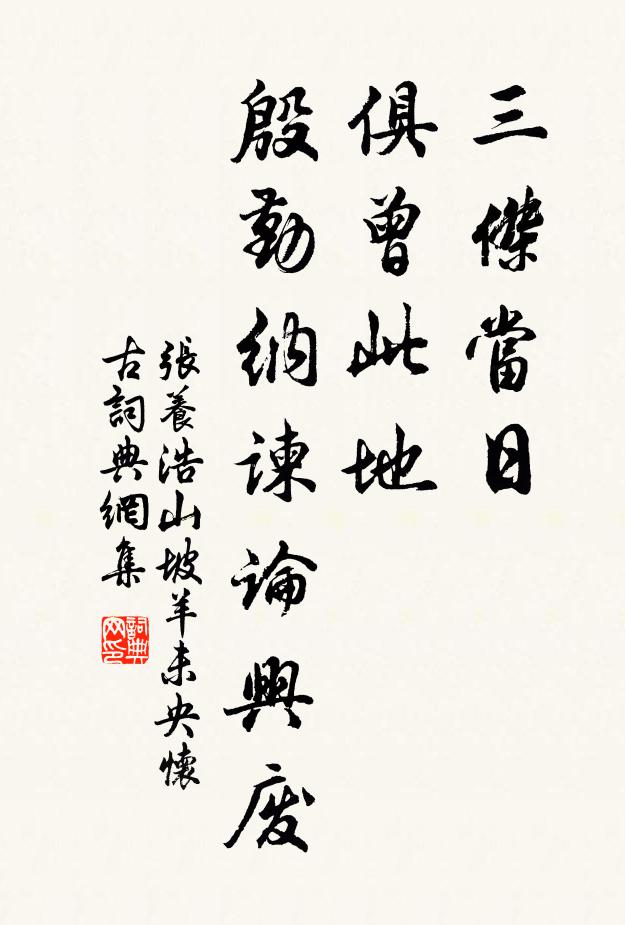 三傑當日
俱曾此地
殷勤納諫論興廢
張養浩山坡羊未央懷
古詞典網集
詞典网印